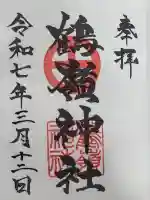 奉拝
鶴嶺神社
令和七年三月十二日